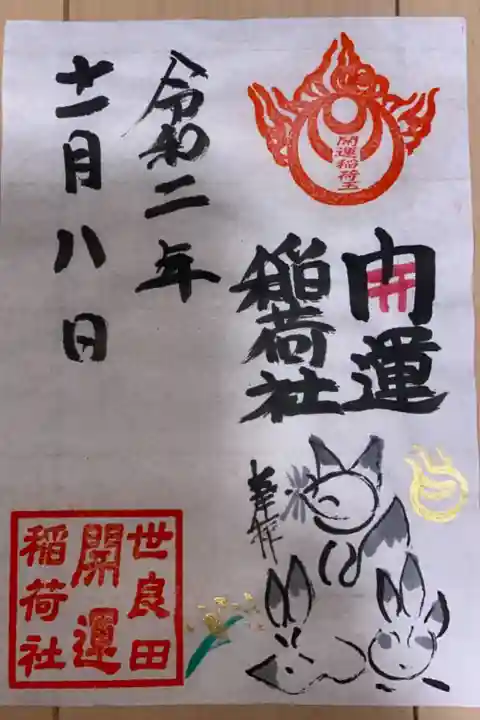 開運稲荷王
開運
稲荷社
奉拝
令和二年
十一月八日
世良田
開運
稲荷社